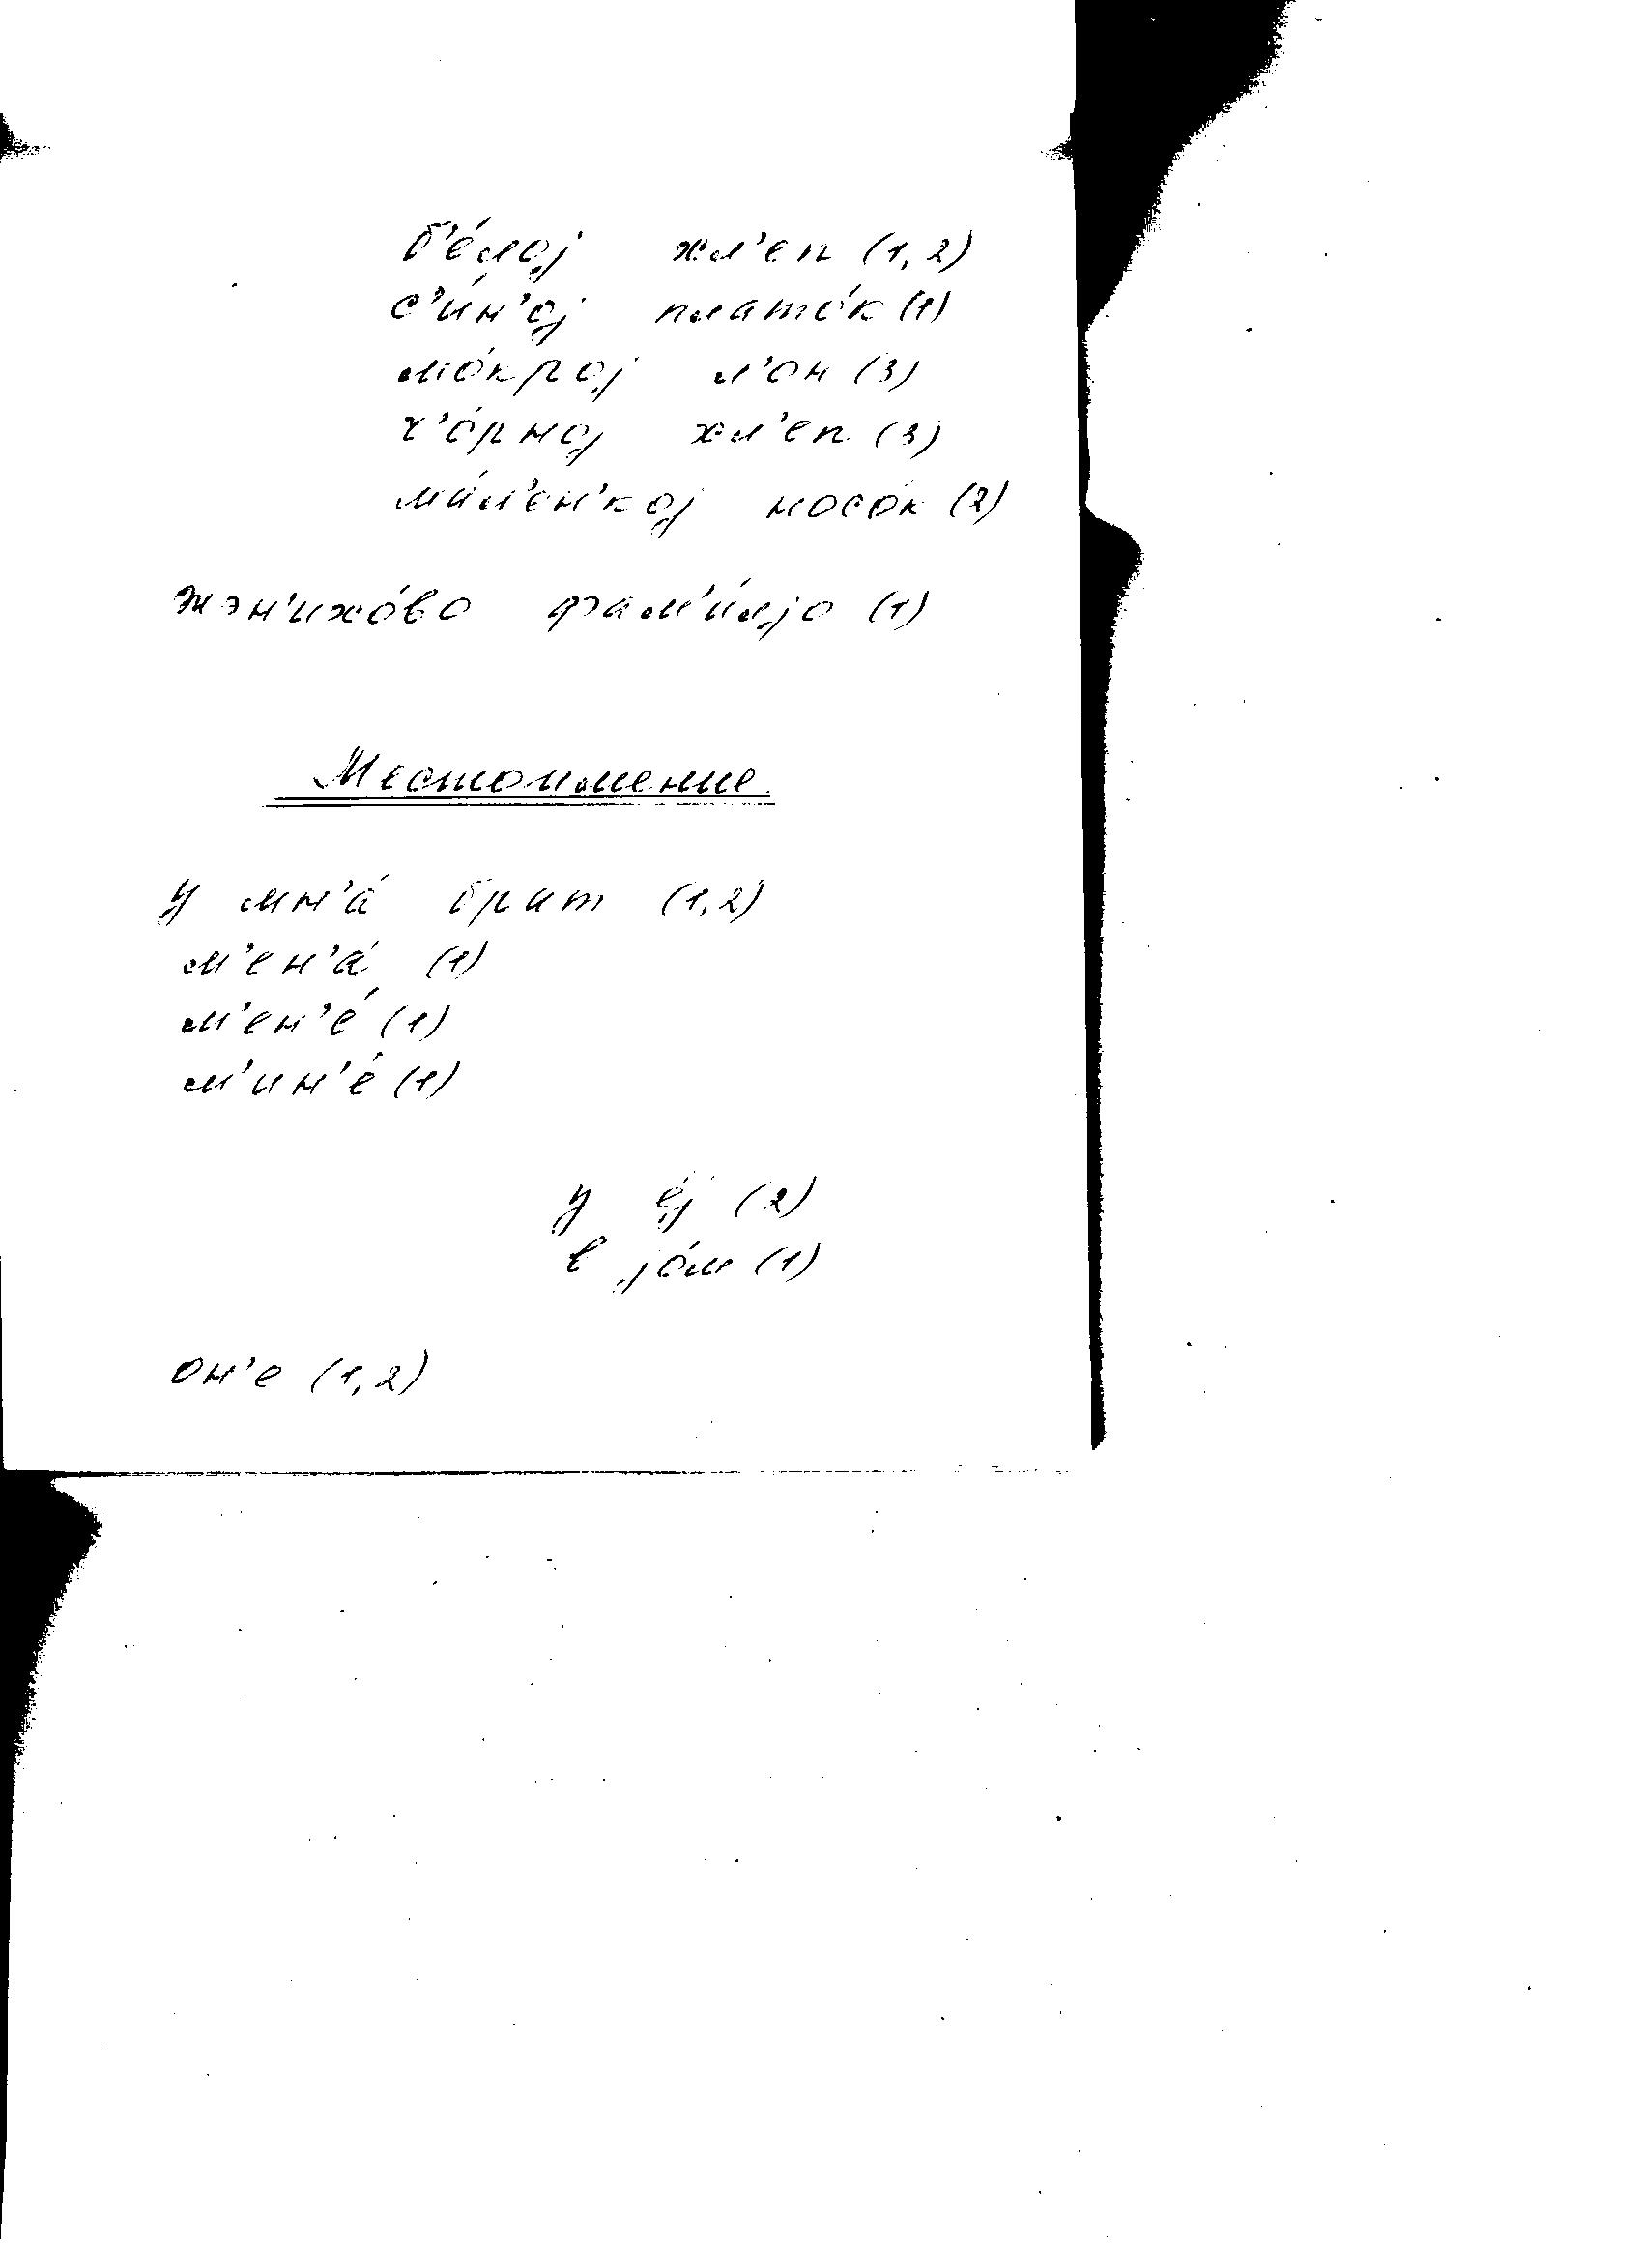 б'е́лој хл'еп (1,2)
с'и́н'ој плато́к (1)
мо́крој л'он (3)
ч'о́рној хл'еп (3)
ма́л'ен'кој носо́к (2)
жэн'ихо́во фам'и́лјо (1)
Местоимение
у мн'а́ брат (1,2)
м'ен'а́ (1)
м'ен'е́ (1)
м'ин'е́ (1)
у е́ј (2)
в јо́м (1)
он'е (1,2)